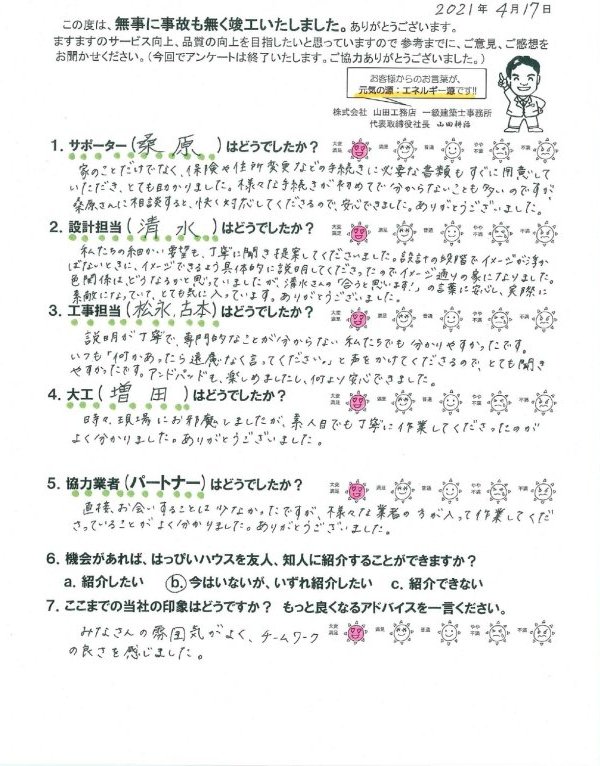 2021年 4月17日
この度は、無事に事故も無く竣工いたしました。ありがとうございます。
ますますのサービス向上、品質の向上を目指したいと思っていますので 参考までに、ご意見、ご感想を
お聞かせください。(今回でアンケートは終了いたします。ご協力ありがとうございました。)
お客様からのお言葉が、
元気の源:エネルギー源です!!
株式会社 山田工務店 一級建築士事務所
代表取締役社長 山田耕治
1. サポーター(桑原)はどうでしたか? 大変満足 満足 普通 やや不満 不満
家のことだけでなく、保険や住所変更などの手続きに必要な書類もすぐに用意して
いただき、とても助かりました。様々な手続きが初めてで分からないことも多いのですが
桑原さんに相談すると、快く対応してくださるので、安心できました。ありがとうございました。
2. 設計担当(清水)はどうでしたか? 大変満足 満足 普通 やや不満 不満
私たちの細かい要望も、丁寧に聞き提案してくださいました。設計の段階でイメージが浮か
ばないときに、イメージできるよう具体的に説明してくださったのでイメージ通りの家になりました。
色関係は、どうなるかと思っていましたが、清水さんの「合うと思います!」の言葉に安心し、実際に
素敵になっていて、とても気に入っています。ありがとうございました。
3. 工事担当(松永,古本)はどうでしたか? 大変満足 満足 普通 やや不満 不満
説明が丁寧で、専門的なことが分からない私たちでも分かりやすかったです。
いつも「何かあったら遠慮なく言ってください。」と声をかけてくださるので、とても聞き
やすかったです。アンドパッドも、楽しめましたし、何より安心できました。
4. 大工(増田)はどうでしたか? 大変満足 満足 普通 やや不満 不満
時々、現場にお邪魔しましたが、素人目でも丁寧に作業してくださったのが
よく分かりました。ありがとうございました。
5. 協力業者(パートナー)はどうでしたか? 大変満足 満足 普通 やや不満 不満
直接、お会いすることは少なかったですが、様々な業者の方が入って作業してくだ
さっていることがよく分かりました。ありがとうございました。
6. 機会があれば、はっぴいハウスを友人、知人に紹介することができますか?
a. 紹介したい b. 今はいないが、いずれ紹介したい c. 紹介できない
7. ここまでの当社の印象はどうですか? もっと良くなるアドバイスを一言ください。
みなさんの雰囲気がよく、チームワーク 大変満足 満足 普通 やや不満 不満
の良さを感じました。